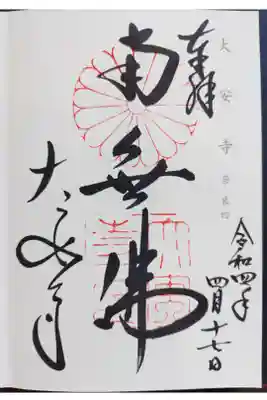 大安寺
奉拝
令和四年
四月十七日
南無佛
大安寺